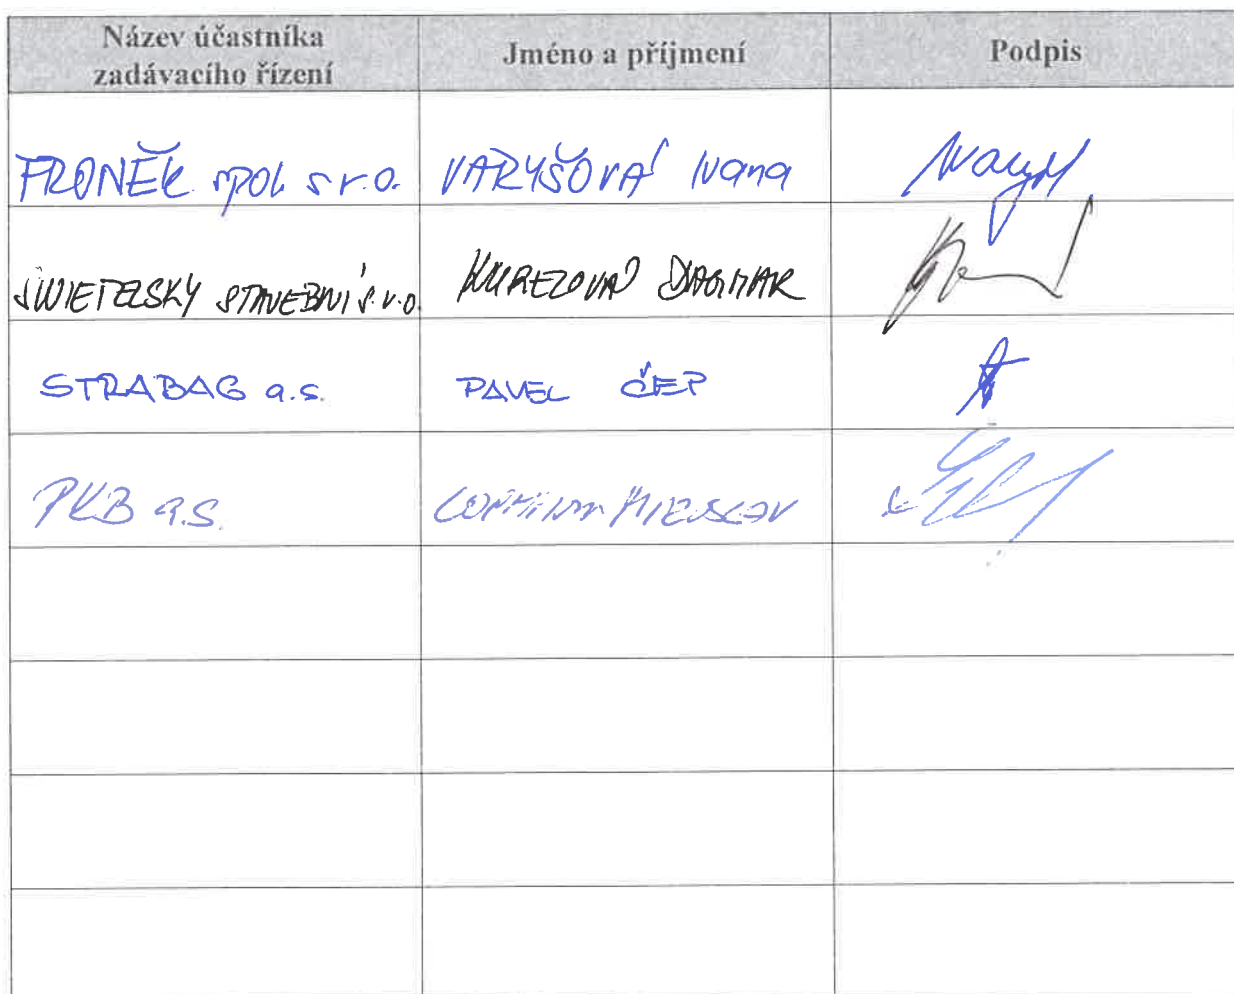 Název účastníka
zadávacího řízení
Jméno a příjmení
Podpis
FRONĚK spol s r.o. VARYŠOVÁ Ivana
SWIETELSKY STAVEBNÍ s.r.o. DAGMAR
STRABAG a.s. PAVEL ČEP
PKB a.s.